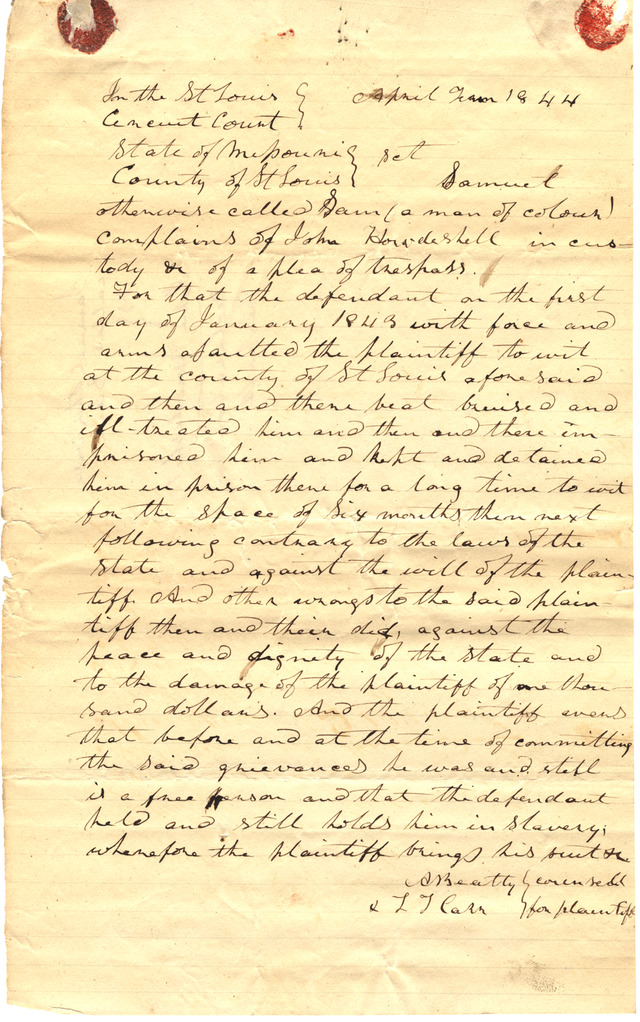 In the St Louis } April Term 1844
Circuit Court }
State of Missouri } sct
County of St Louis } Samuel
otherwise called Sam (a man of colour)
complains of John Howdeshell in cus-
tody &c of a plea of trespass.
For that the defendant on the first
day of January 1843 with force and
arms assaulted the plaintiff to wit
at the county of St Louis aforesaid
and then and there beat bruised and
ill-treated him and then and there im-
prisoned him and kept and detained
him in prison there for a long time to wit
for the space of six months then next
following contrary to the laws of the
State and against the will of the plain-
tiff. And other wrongs to the said plain-
tiff then and their did, against the
peace and dignity of the state and
to the damage of the plaintiff of one thou-
sand dollars. And the plaintiff avers
that before and at the time of committing
the said grievances he was and still
is a free person and that the defendant
held and still holds him in slavery;
wherefore the plaintiff brings his suit &c
A Beatty } counsel
& L T Carr } for plaintiff